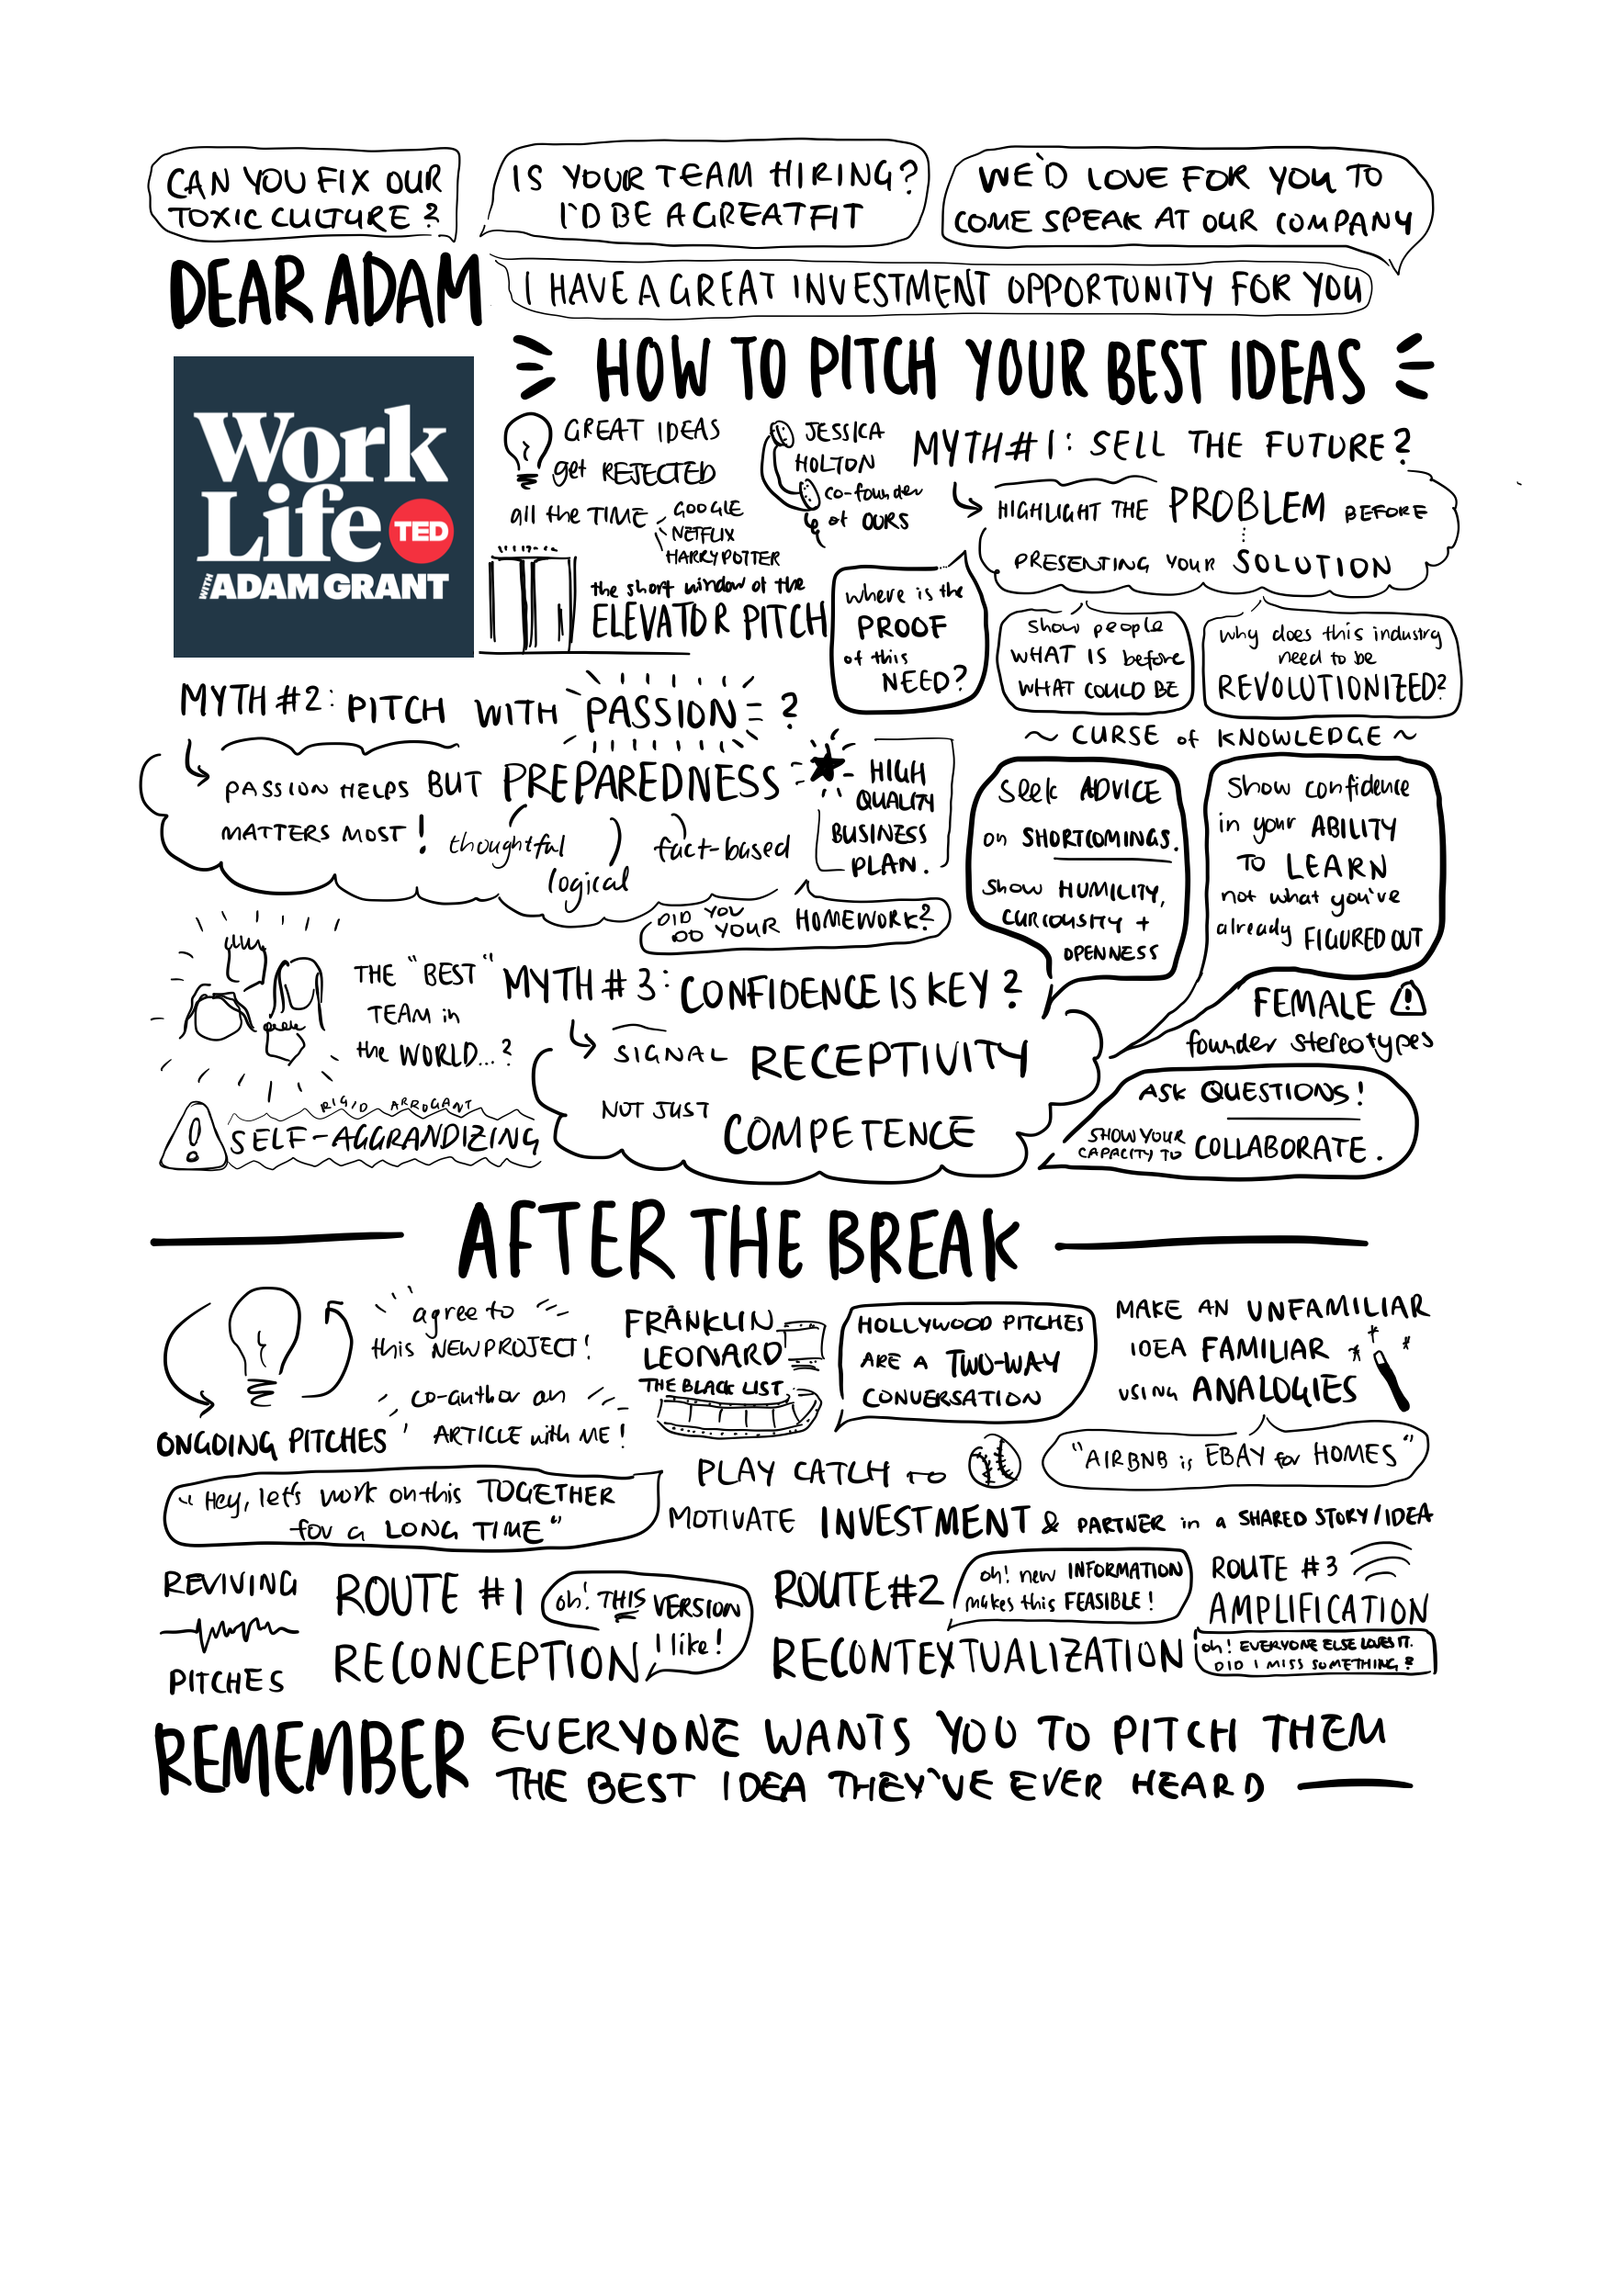 CAN YOU FIX OUR
TOXIC CULTURE?
IS YOUR TEAM HIRING?
I'D BE A GREAT FIT
WE'D LOVE FOR YOU TO
COME SPEAK AT OUR COMPANY
DEAR ADAM
I HAVE A GREAT INVESTMENT OPPORTUNITY FOR YOU
HOW TO PITCH YOUR BEST IDEAS
Work
Life
TED
WITH ADAM GRANT
GREAT IDEAS
get REJECTED
all the TIME
GOOGLE
NETFLIX
HARRY POTTER
JESSICA
HOLTON
co-founder
of OURS
the short window of the
ELEVATOR PITCH
MYTH #1: SELL THE FUTURE?
HIGHLIGHT THE PROBLEM BEFORE
PRESENTING YOUR SOLUTION
where is the
PROOF
of this
NEED?
Show people
WHAT IS before
WHAT COULD BE
why does this industry
need to be
REVOLUTIONIZED?
~ CURSE of KNOWLEDGE ~
MYTH #2: PITCH WITH PASSION?
PASSION HELPS BUT PREPAREDNESS
MATTERS MOST!
thoughtful
logical
fact-based
HIGH
QUALITY
BUSINESS
PLAN.
DID YOU
DO YOUR HOMEWORK?
Seek ADVICE
on SHORTCOMINGS.
Show HUMILITY,
CURIOUSITY +
OPENNESS
Show confidence
in your ABILITY
TO LEARN
not what you've
already FIGURED OUT
THE "BEST"
TEAM in
the WORLD...?
MYTH #3: CONFIDENCE IS KEY?
SIGNAL RECEPTIVITY
NOT JUST
COMPETENCE
RIGID ARROGANT
SELF-AGGRANDIZING
FEMALE
founder stereotypes
ASK QUESTIONS!
SHOW YOUR
CAPACITY TO COLLABORATE.
AFTER THE BREAK
agree to
this NEW PROJECT!
co-author an
ARTICLE with ME!
ONGOING PITCHES
"Hey, let's work on this TOGETHER
for a LONG TIME"
FRANKLIN
LEONARD
THE BLACK LIST
HOLLYWOOD PITCHES
ARE A TWO-WAY
CONVERSATION
MAKE AN UNFAMILIAR
IDEA FAMILIAR
USING ANALOGIES
"AIRBNB is EBAY for HOMES"
PLAY CATCH TO
MOTIVATE INVESTMENT & PARTNER in a SHARED STORY/IDEA
REVIVING
PITCHES
ROUTE #1
RECONCEPTION
oh! THIS VERSION
I like!
ROUTE #2
RECONTEXTUALIZATION
oh! new INFORMATION
makes this FEASIBLE!
ROUTE #3
AMPLIFICATION
oh! EVERYONE ELSE LOVES IT.
DID I MISS SOMETHING?
REMEMBER
EVERYONE WANTS YOU TO PITCH THEM
THE BEST IDEA THEY'VE EVER HEARD